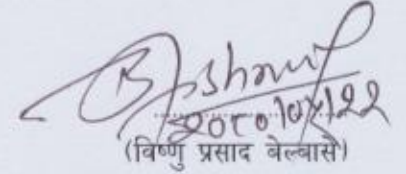 २०८०/०५/२२
(विष्णु प्रसाद बेल्बासे)